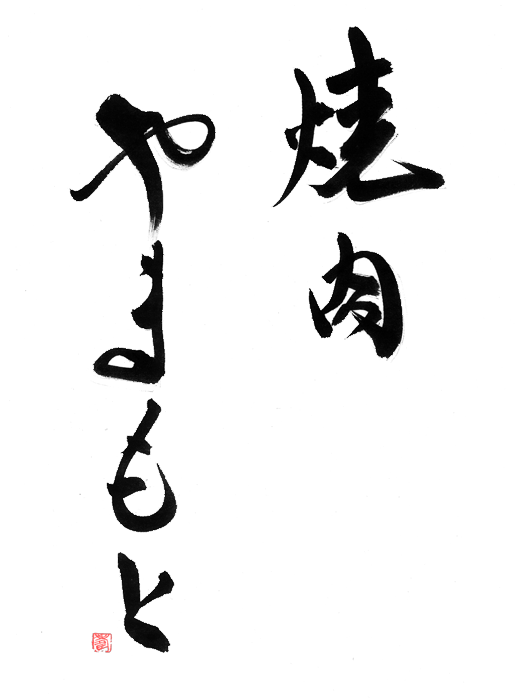 焼肉
やまもと